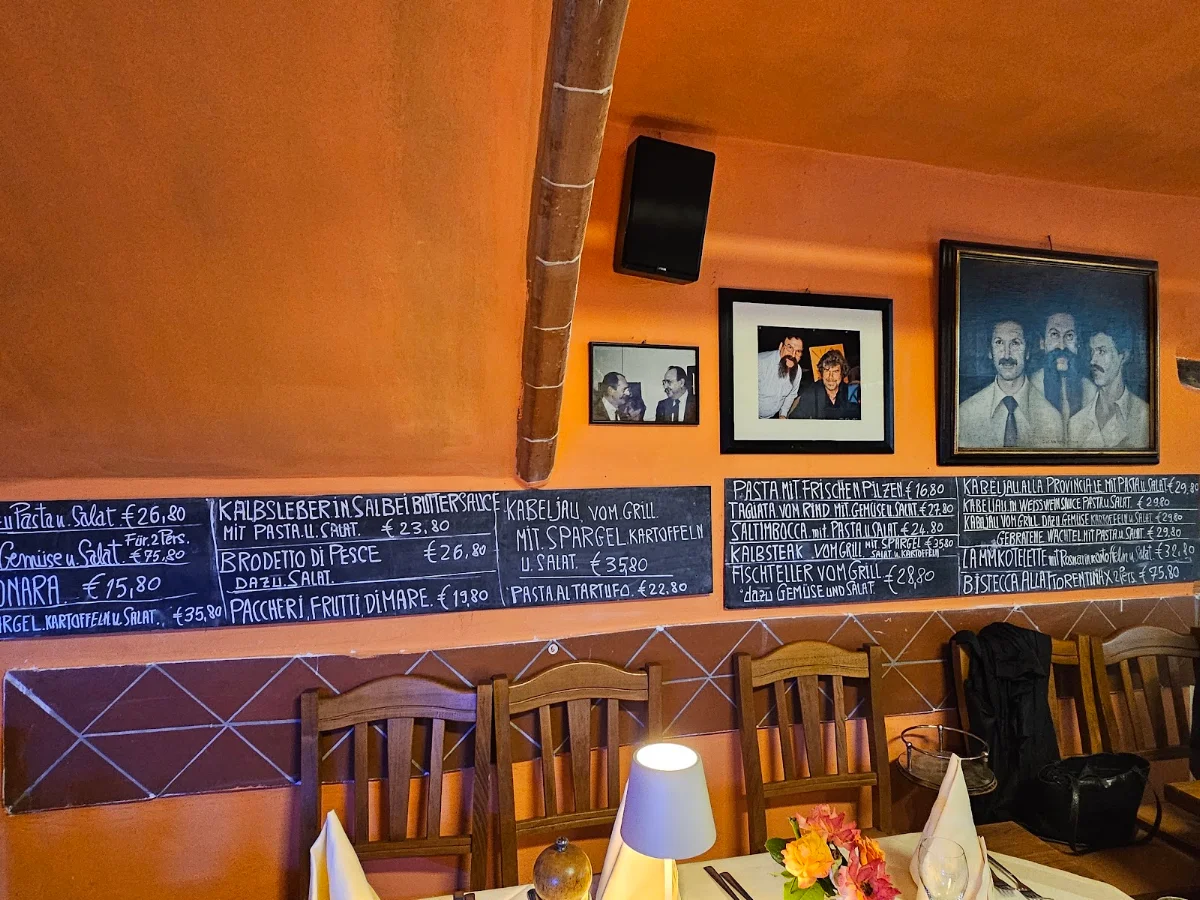 u Pasta u. Salat €26,80
Für 2 Pers.
Gemüse u. Salat. €75,80
ONARA. €15,80
ARGEL. KARTOFFELN. u SALAT., €35,80
KALBSLEBER IN SALBEI BUTTERSAUCE
MIT PASTA. U. SALAT. €23.80
BRODETTO DI PESCE €26,80
DAZU. SALAT.
PACCHERI, FRUTTI, DI MARE. €19,80
KABELJAU, VOM GRILL
MIT. SPARGEL. KARTOFFELN
U. SALAT. €35,80
PASTA. AL TARTUFO. €22.80
PASTA MIT FRISCHEN PILZEN. €16,80
TAGLIATA VOM RIND MIT. GEMÜSE u SALAT €27.80
SALTIMBOCCA. mit PASTA u SALAT €24,80
KALBSTEAK VOM GRILL MIT SPARGEL €35,80
SALAT u. KARTOFFELN
FISCHTELLER VOM GRILL €28,80
dazu GEMÜSE UND SALAT.
KABELJAU. ALLA PROVINCIALE MIT PASTA u SALAT €29,80
KABELJAU IN WEISSWEINSAUCE PASTA u. SALAT. €29.80
KABLJAU VOM GRILL. DAZU GEMÜSE KARTOFFELN u SALAT €29.80
GEBRATENE WACHTEL MIT PASTA u. SALAT. €29.80
LAMMKOTELETTE mit Rosmarin u. Salat. €32.80
BISTECCA. ALLA FIORENTINA X 2 Pers. €75,80